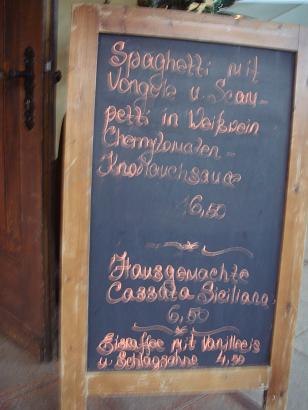 Spaghetti mit
Vongole u. Scam-
petti in Weißwein
Cherrytomaten-
Knoblauchsauce
16,50
Hausgemachte
Cassata Siciliana
6,50
Eiskaffee mit Vanilleeis
u. Schlagsahne 4,50